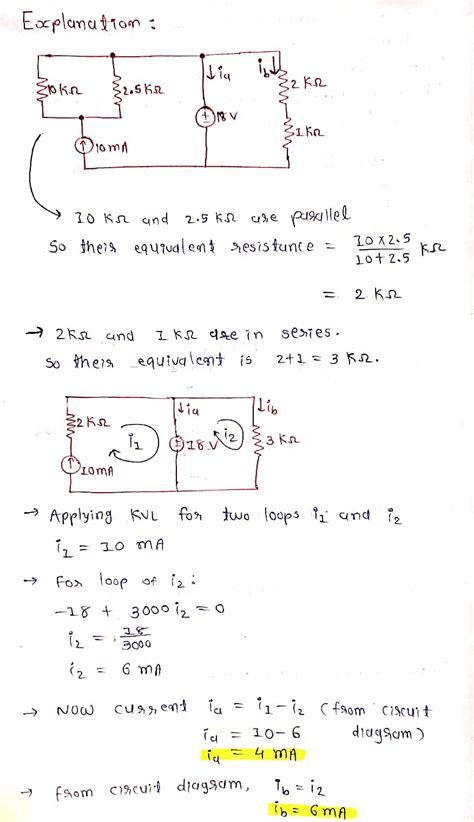 Explanation :
10 KΩ 2.5 KΩ ↓ia ib↓ 2 KΩ
± 18 V
10 mA 1 KΩ
→ 10 KΩ and 2.5 KΩ are parallel
So their equivalent resistance = 10 x 2.5 / 10 + 2.5 KΩ
= 2 KΩ
→ 2KΩ and 1 KΩ are in series.
So their equivalent is 2+1 = 3 KΩ.
↓ia ↓ib
2 KΩ i1 ± 18 V i2 3 KΩ
10mA
→ Applying KVL for two loops i1 and i2
i1 = 10 mA
→ For loop of i2 :
-18 + 3000 i2 = 0
i2 = 18 / 3000
i2 = 6 mA
→ NOW current ia = i1 - i2 (from circuit
ia = 10 - 6 diagram)
ia = 4 mA
→ from circuit diagram, ib = i2
ib = 6 mA